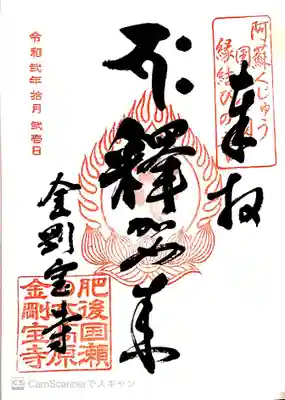 阿蘇くじゅう
国
縁結びの
奉拝
釋迦如来
令和弐年拾月弐壱日
金剛宝寺
肥後国瀬
本高原
金剛宝寺
CS CamScannerで入キャン